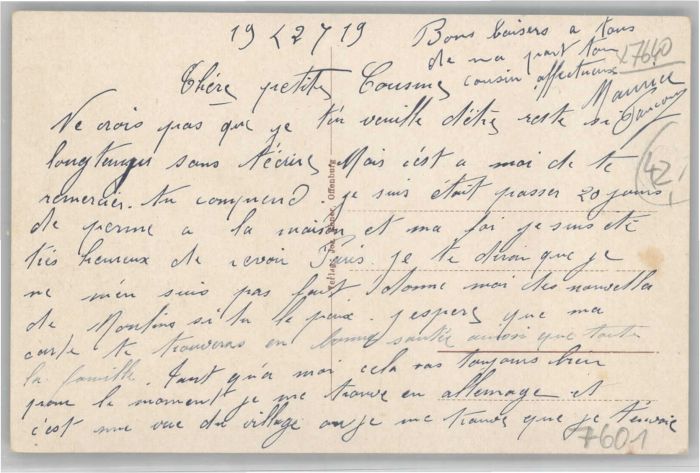 19 2 7 19
Bons baisers a tous
de ma part ton
cousin affectueux
Maurice
x7640
Chère petite Cousine
Ne crois pas que je t'en veuille d'être resté si
longtemps sans t'écrire Mais c'est a moi de te
remercier. Tu comprend je suis était passer 20 jours
de perme a la maison et ma foi je suis été
très heureux de revoir Paris je te dirai que je
ne m'en suis pas fait donne moi des nouvelles
de Moulins si tu le peux. j'espère que ma
carte te trouveras en bonne santée aussi que toute
la famille. Tant qu'a moi cela vas toujours bien
pour le moment je me trouve en allemage et
c'est une vue du village ou je me trouve que je t'envoie
Verlag Offenburg
42
7601